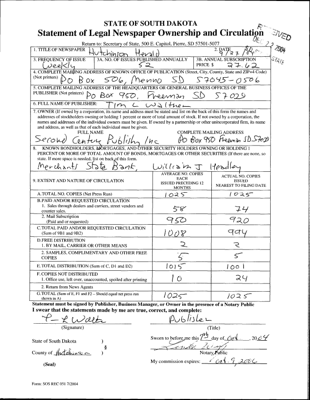 STATE OF SOUTH DAKOTA
Statement of Legal Newspaper Ownership and Circulation
Return to: Secretary of State, 500 E. Capitol, Pierre, SD 57501-5077
1. TITLE OF NEWSPAPER Hutchinson Herald 2. DATE
3. FREQUENCY OF ISSUE Weekly 3A. NO. OF ISSUES PUBLISHED ANNUALLY 52 3B. ANNUAL SUBSCRIPTION PRICE $ 27.62
4. COMPLETE MAILING ADDRESS OF KNOWN OFFICE OF PUBLICATION (Street, City, County, State and ZIP+4 Code)
(Not printer) Po Box 506, Menno SD 57045-0506
5. COMPLETE MAILING ADDRESS OF THE HEADQUARTERS OR GENERAL BUSINESS OFFICES OF THE
PUBLISHER (Not printer) Po Box 950, Freeman SD 57029
6. FULL NAME OF PUBLISHER: Tim L Waltner
7. OWNER (If owned by a corporation, its name and address must be stated and list on the back of this form the names and
addresses of stockholders owning or holding 1 percent or more of total amount of stock. If not owned by a corporation, the
names and addresses of the individual owners must be given. If owned by a partnership or other unincorporated firm, its name
and address, as well as that of each individual must be given.
FULL NAME COMPLETE MAILING ADDRESS
Second Century Publishing Inc Po Box 950 Freeman SD 57029
8. KNOWN BONDHOLDERS, MORTGAGES, AND OTHER SECURITY HOLDERS OWNING OR HOLDING 1
PERCENT OR MORE OF TOTAL AMOUNT OF BONDS, MORTGAGES OR OTHER SECURITIES (If there are none, so
state. If more space is needed, list on back of this form.
Merchants State Bank, William J Headley
9. EXTENT AND NATURE OF CIRCULATION
AVERAGE NO. COPIES EACH ISSUED PRECEDING 12 MONTHS
ACTUAL NO. COPIES ISSUED NEAREST TO FILING DATE
A. TOTAL NO. COPIES (Net Press Run) 1025 1025
B. PAID AND/OR REQUESTED CIRCULATION
1. Sales through dealers and carriers, street vendors and counter sales. 58 74
2. Mail Subscription (Paid and or requested) 950 920
C. TOTAL PAID AND/OR REQUESTED CIRCULATION (Sum of 9B1 and 9B2) 1008 994
D. FREE DISTRIBUTION
1. BY MAIL, CARRIER OR OTHER MEANS 2 2
2. SAMPLES, COMPLIMENTARY AND OTHER FREE COPIES 5 5
E. TOTAL DISTRIBUTION (Sum of C, D1 and D2) 1015 1001
F. COPIES NOT DISTRIBUTED
1. Office use, left over, unaccounted, spoiled after printing 10 24
2. Return from News Agents
G. TOTAL (Sum of E, F1 and F2 - Should equal net press run shown in A) 1025 1025
Statement must be signed by Publisher, Business Manager, or Owner in the presence of a Notary Public
I swear that the statements made by me are true, correct, and complete:
Publisher
(Signature) (Title)
State of South Dakota )
County of Hutchinson )
Sworn to before me this 9th day of Oct 2004
Notary Public
(Seal) My commission expires:
Form: SOS REC 051 7/2004